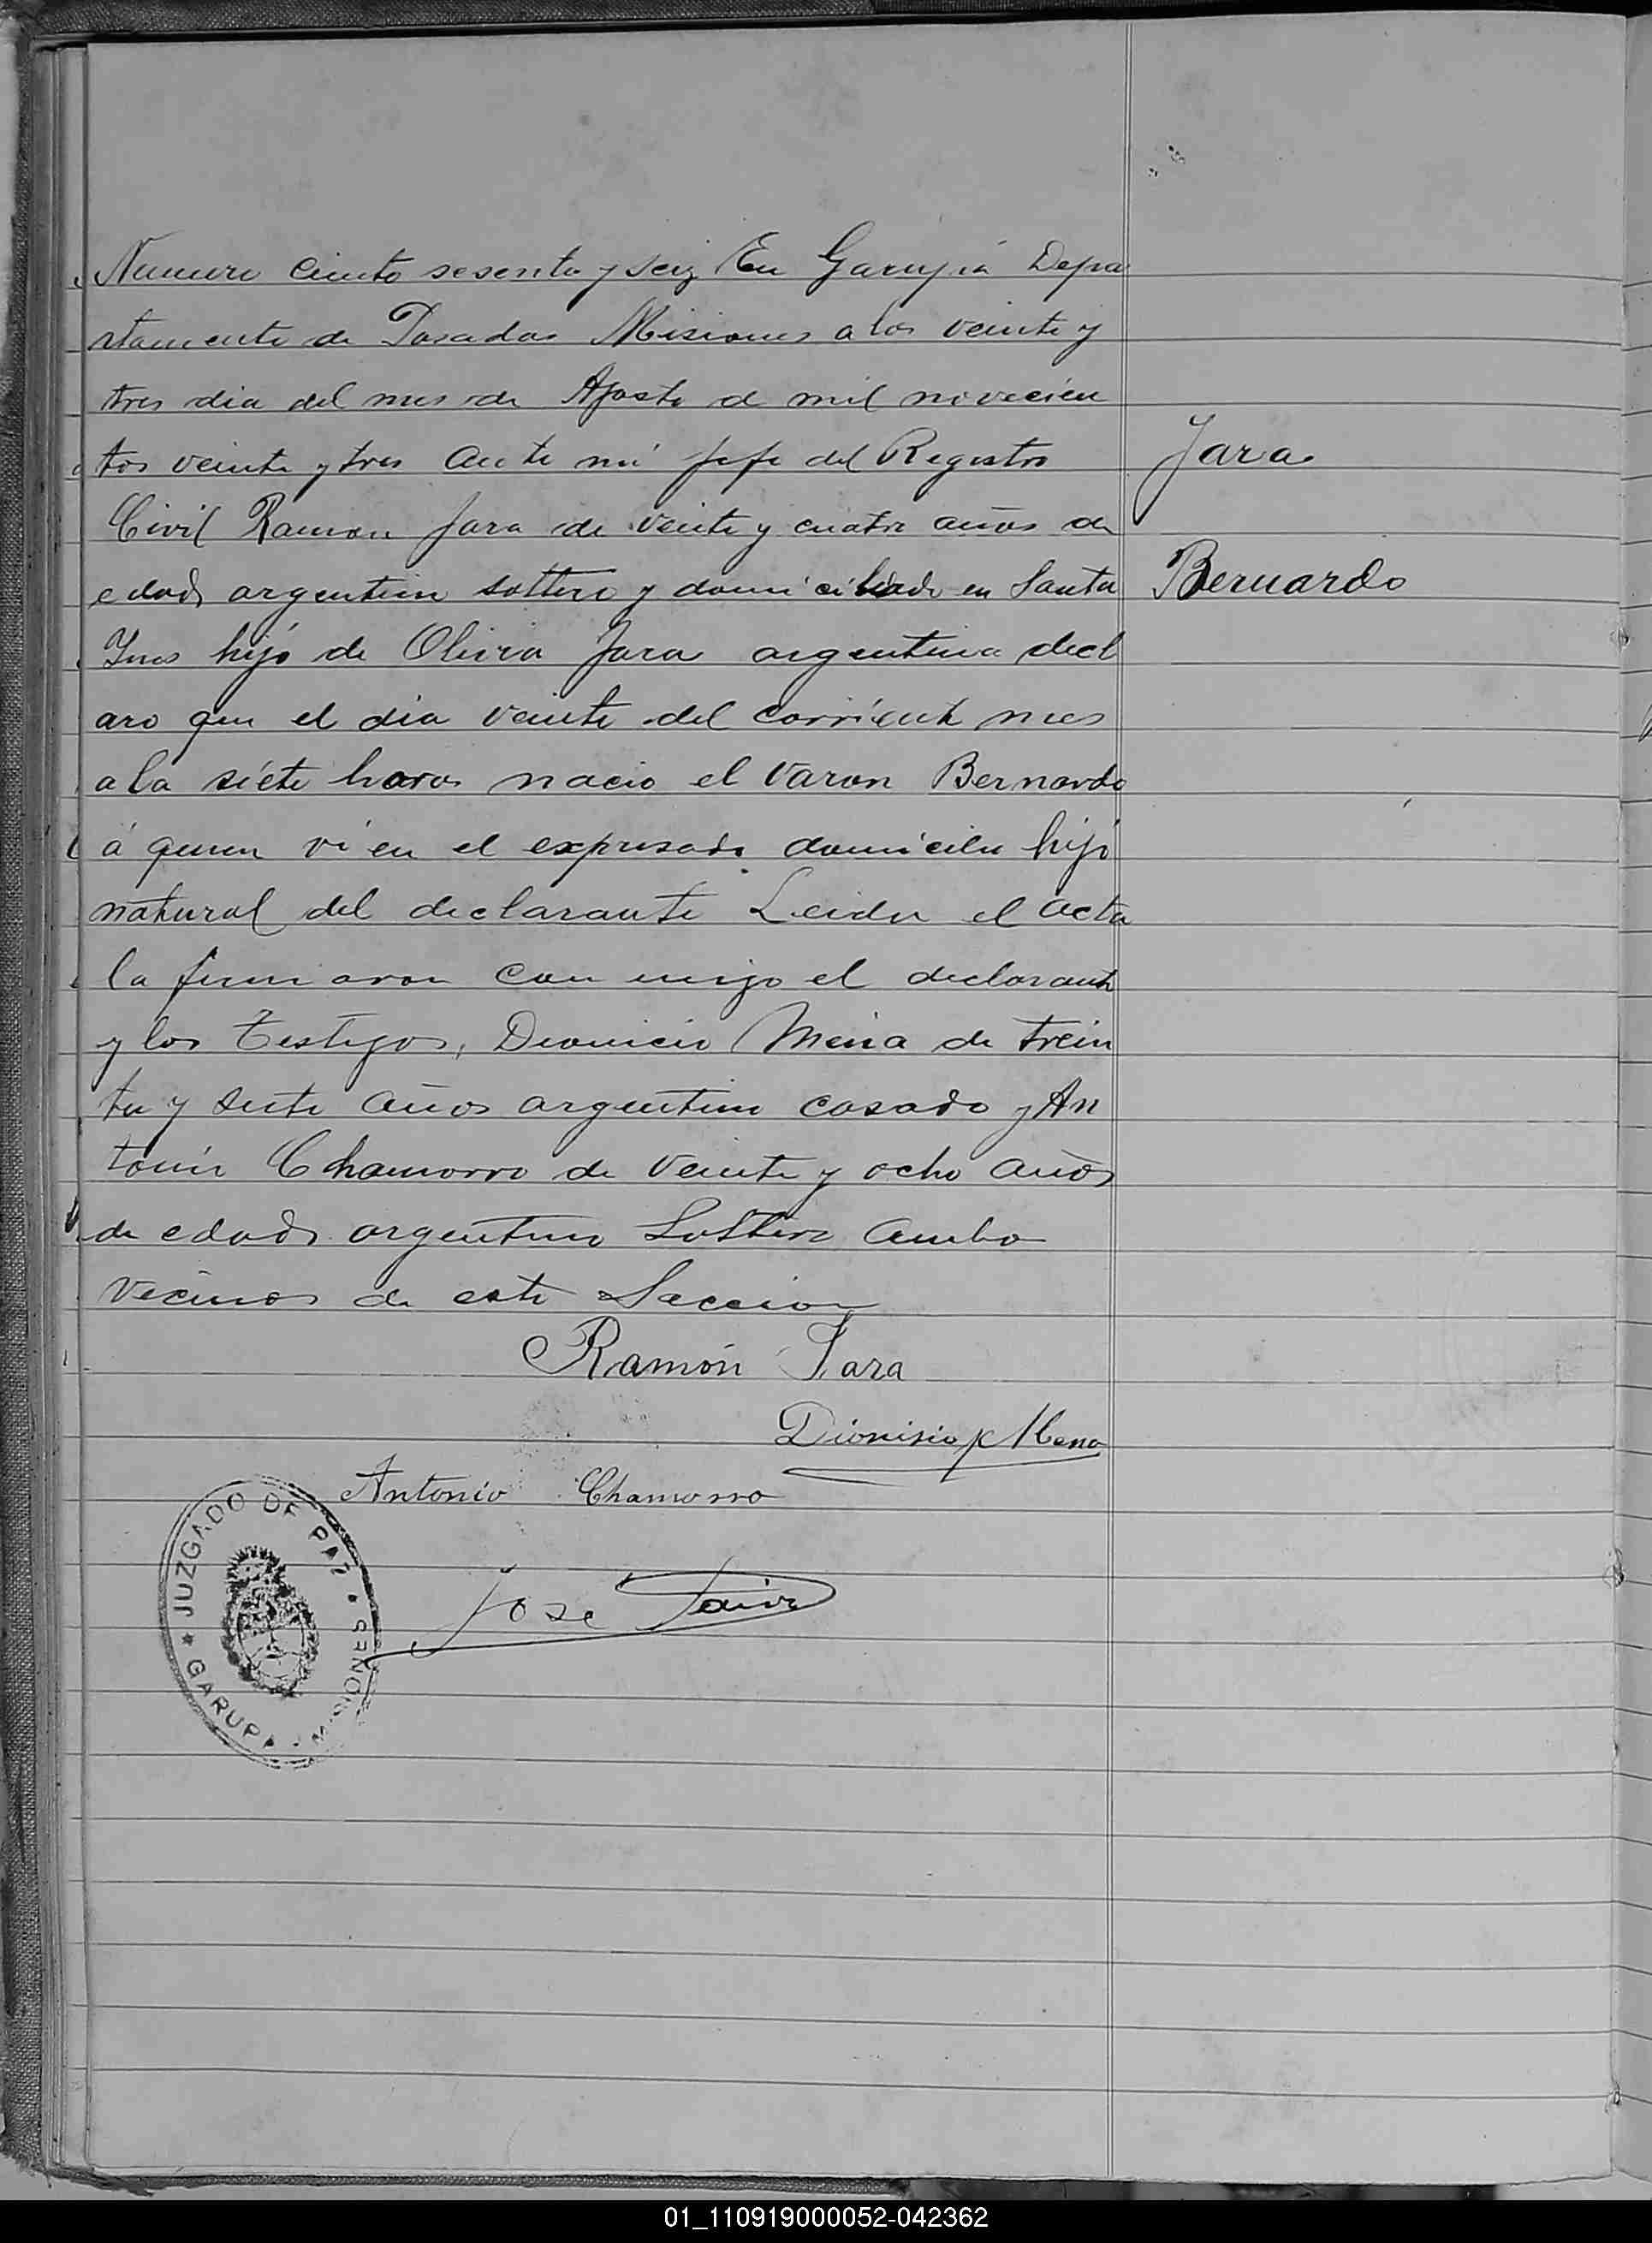 Numero Ciento sesenta y seiz En Garupá Depa
rtamento de Posadas Misiones a los veinte y
tres dia del mes de Agosto de mil novecien
tos veinte y tres ante mi Jefe del Registro
Civil Ramon Jara de veinte y cuatro años de
edad argentino soltero y domiciliado en Santa
Ines hijo de Olivia Jara argentina decl
aro que el dia veinte del corriente mes
a la siete horas nacio el varon Bernardo
á quien vi en el expresado domicilio hijo
natural del declarante Leida el acta
la firmaron con migo el declarante
y los testigos, Dionicio Mena de trein
ta y siete años argentino casado y An
tonio Chamorro de veinte y ocho años
de edad argentino Soltero ambo
vecinos de este Seccion
Jara
Bernardo
Ramón Jara
Dionisio Mena
Antonio Chamorro
Jose
JUZGADO DE PAZ
GARUPA
01_110919000052-042362